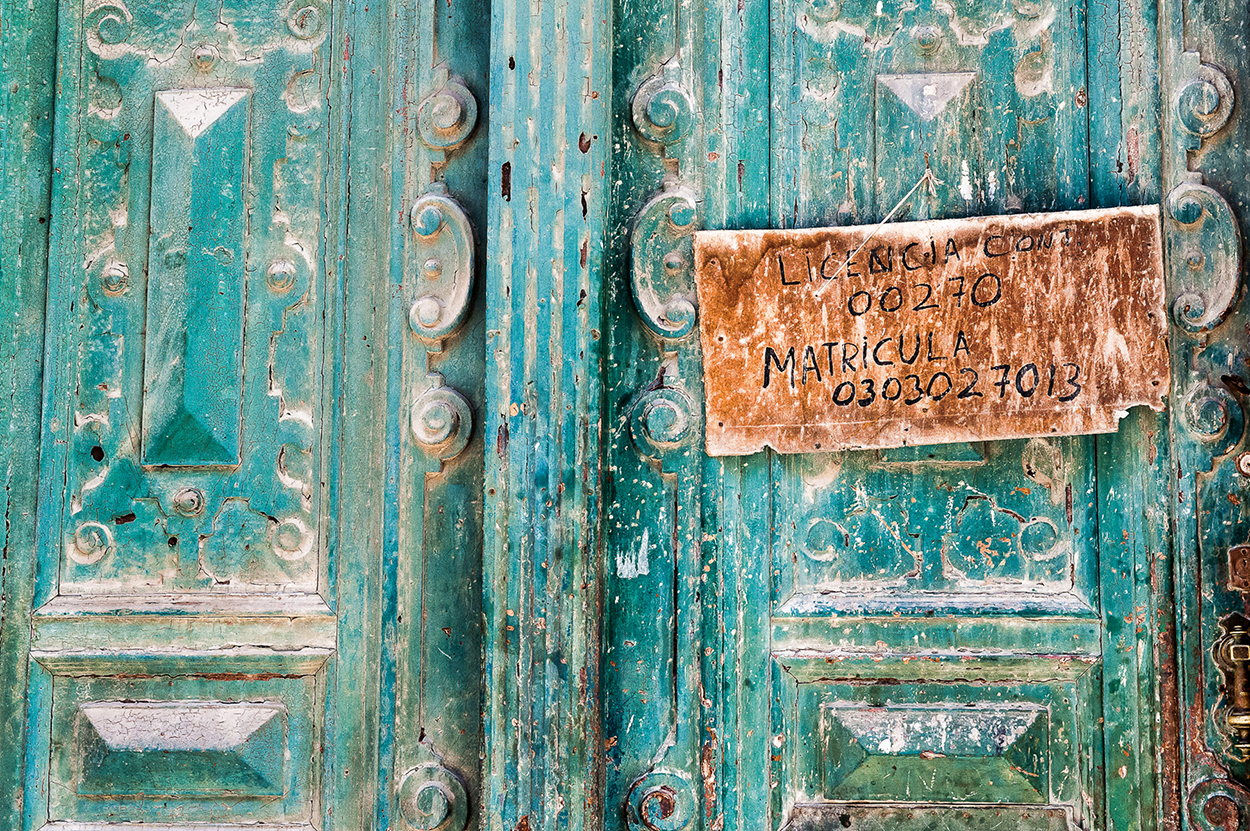 LICENCIA CONT
00270
MATRICULA
0303027013